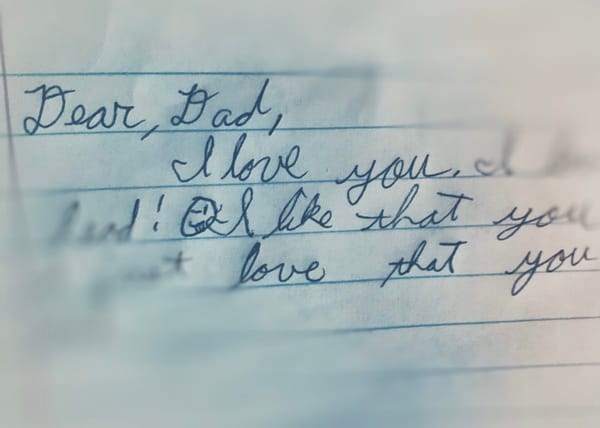 Dear, Dad,
I love you. I
! I like that you
love that you